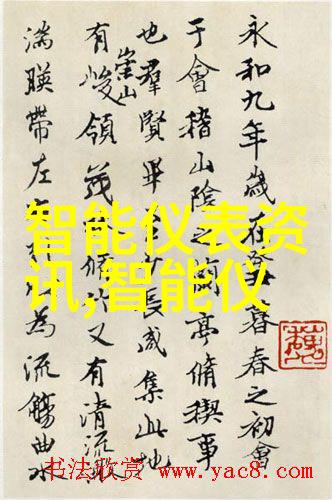 永和九年歲在癸暮春之初會
于會稽山陰之蘭亭脩稧事
也群賢畢至少長咸集此地
有崇山峻領茂林脩竹又有清流激
湍暎帶左右為流觴曲水
智能仪表资
讯,智能仪
书法欣赏 www.yac8.com